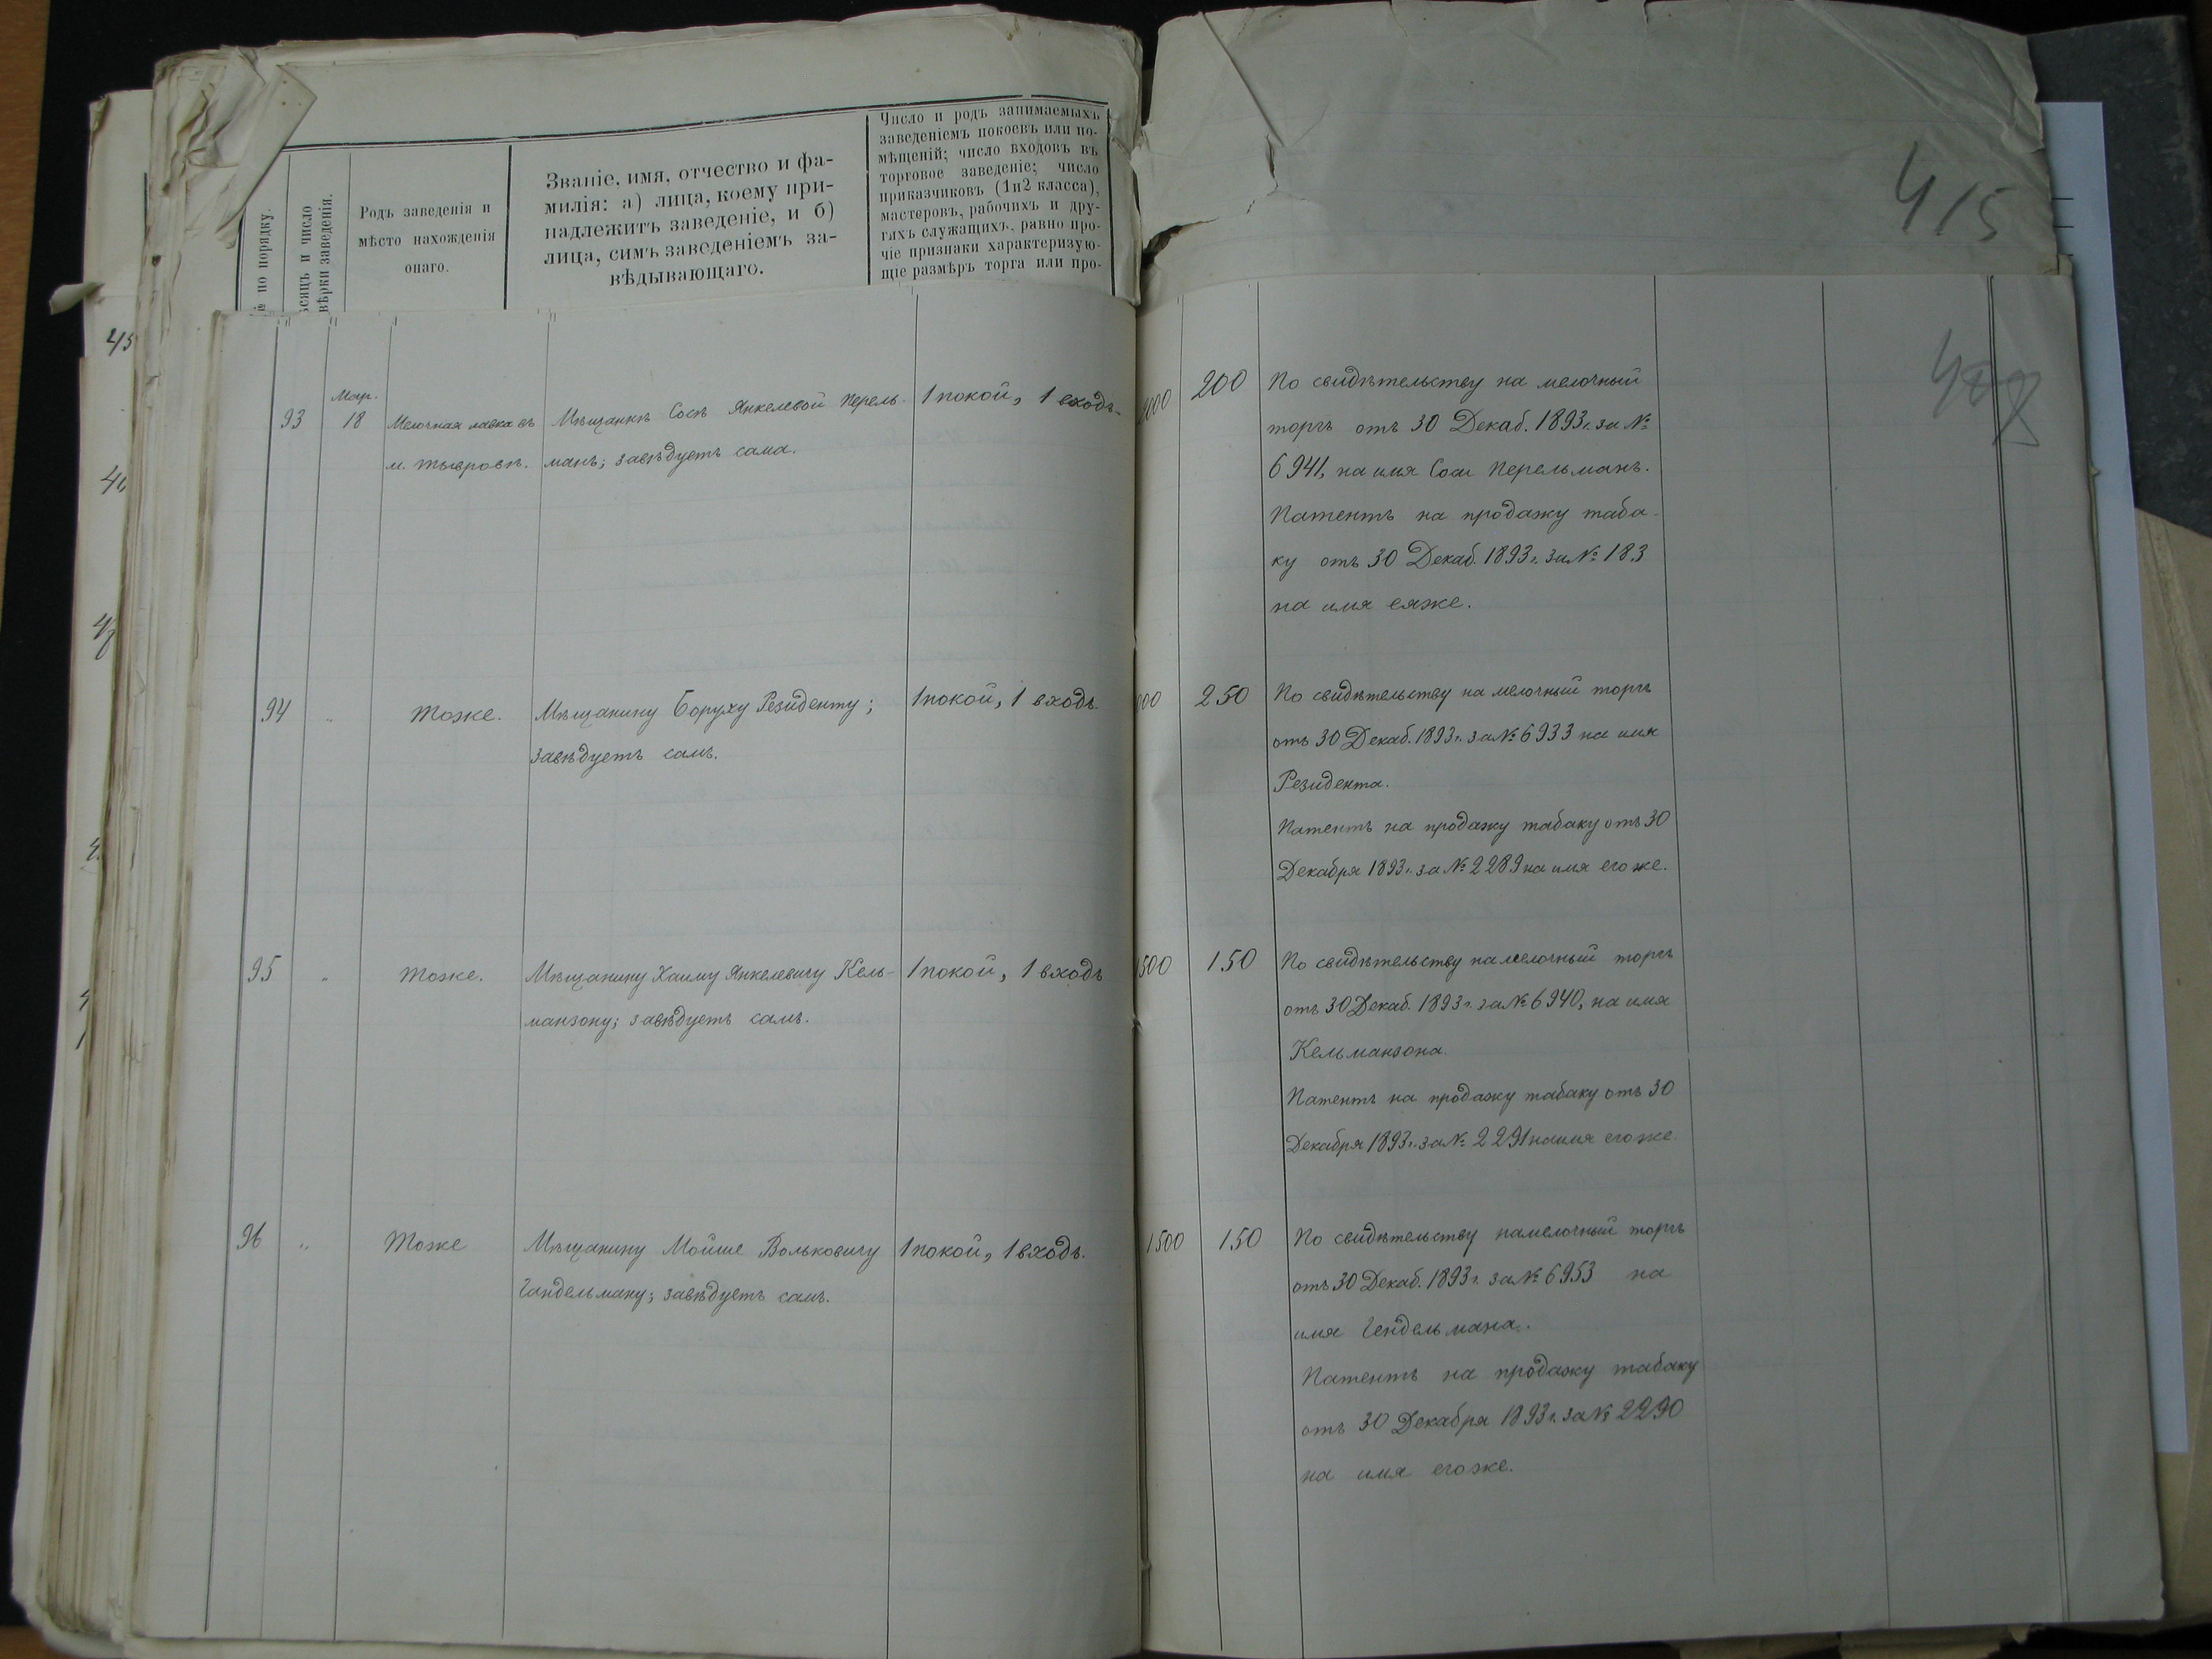 № по порядку.
сяцъ и число
вѣрки заведенія.
Родъ заведенія и
мѣсто нахожденія
онаго.
Званіе, имя, отчество и фа-
милія: а) лица, коему при-
надлежитъ заведеніе, и б)
лица, симъ заведеніемъ за-
вѣдывающаго.
Число и родъ занимаемыхъ
заведеніемъ покоевъ или по-
мѣщеній; число входовъ въ
торговое заведеніе; число
приказчиковъ (1и2 класса),
мастеровъ, рабочихъ и дру-
гихъ служащихъ, равно про-
чіе признаки характеризую-
щіе размѣръ торга или про-
415
93
Мар.
18
Мелочная лавка въ
м. Тывровѣ.
Мѣщанкѣ Сосѣ Янкелевой Перель-
манъ; завѣдуетъ сама.
1 покой, 1 входъ.
200
По свидѣтельству на мелочный
торгъ отъ 30 Декаб. 1893 г. за №
6941, на имя Соси Перельманъ.
Патентъ на продажу таба-
ку отъ 30 Декаб. 1893 г. за № 183
на имя еяже.
94
"
Тоже.
Мѣщанину Боруху Резиденту;
завѣдуетъ самъ.
1 покой, 1 входъ.
250
По свидѣтельству на мелочный торгъ
отъ 30 Декаб. 1893 г. за № 6933 на имя
Резидента.
Патентъ на продажу табаку отъ 30
Декабря 1893 г. за № 2289 на имя егоже.
95
"
Тоже.
Мѣщанину Хаиму Янкелевичу Кель-
манзону; завѣдуетъ самъ.
1 покой, 1 входъ
1500
150
По свидѣтельству на мелочный торгъ
отъ 30 Декаб. 1893 г. за № 6940, на имя
Кельманзона.
Патентъ на продажу табаку отъ 30
Декабря 1893 г. за № 2291 на имя егоже.
96
"
Тоже
Мѣщанину Мойше Вольковичу
Гандельману; завѣдуетъ самъ.
1 покой, 1 входъ.
1500
150
По свидѣтельству на мелочный торгъ
отъ 30 Декаб. 1893 г. за № 6953 на
имя Гендельмана.
Патентъ на продажу табаку
отъ 30 Декабря 1893 г. за № 2290
на имя егоже.